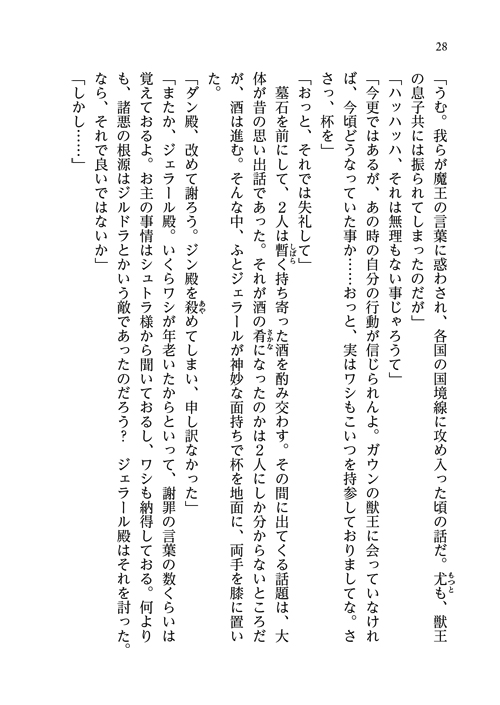 28
「うむ。我らが魔王の言葉に惑わされ、各国の国境線に攻め入った頃の話だ。尤も、獣王
の息子共には振られてしまったのだが」
「ハッハッハ、それは無理もない事じゃろうて」
「今更ではあるが、あの時の自分の行動が信じられんよ。ガウンの獣王に会っていなけれ
ば、今頃どうなっていた事か……おっと、実はワシもこいつを持参しておりましてな。さ
さっ、杯を」
「おっと、それでは失礼して」
　墓石を前にして、２人は暫く持ち寄った酒を酌み交わす。その間に出てくる話題は、大
体が昔の思い出話であった。それが酒の肴になったのかは２人にしか分からないところだ
が、酒は進む。そんな中、ふとジェラールが神妙な面持ちで杯を地面に、両手を膝に置い
た。
「ダン殿、改めて謝ろう。ジン殿を殺めてしまい、申し訳なかった」
「またか、ジェラール殿。いくらワシが年老いたからといって、謝罪の言葉の数くらいは
覚えておるよ。お主の事情はシュトラ様から聞いておるし、ワシも納得しておる。何より
も、諸悪の根源はジルドラとかいう敵であったのだろう？　ジェラール殿はそれを討った。
なら、それで良いではないか」
「しかし……」